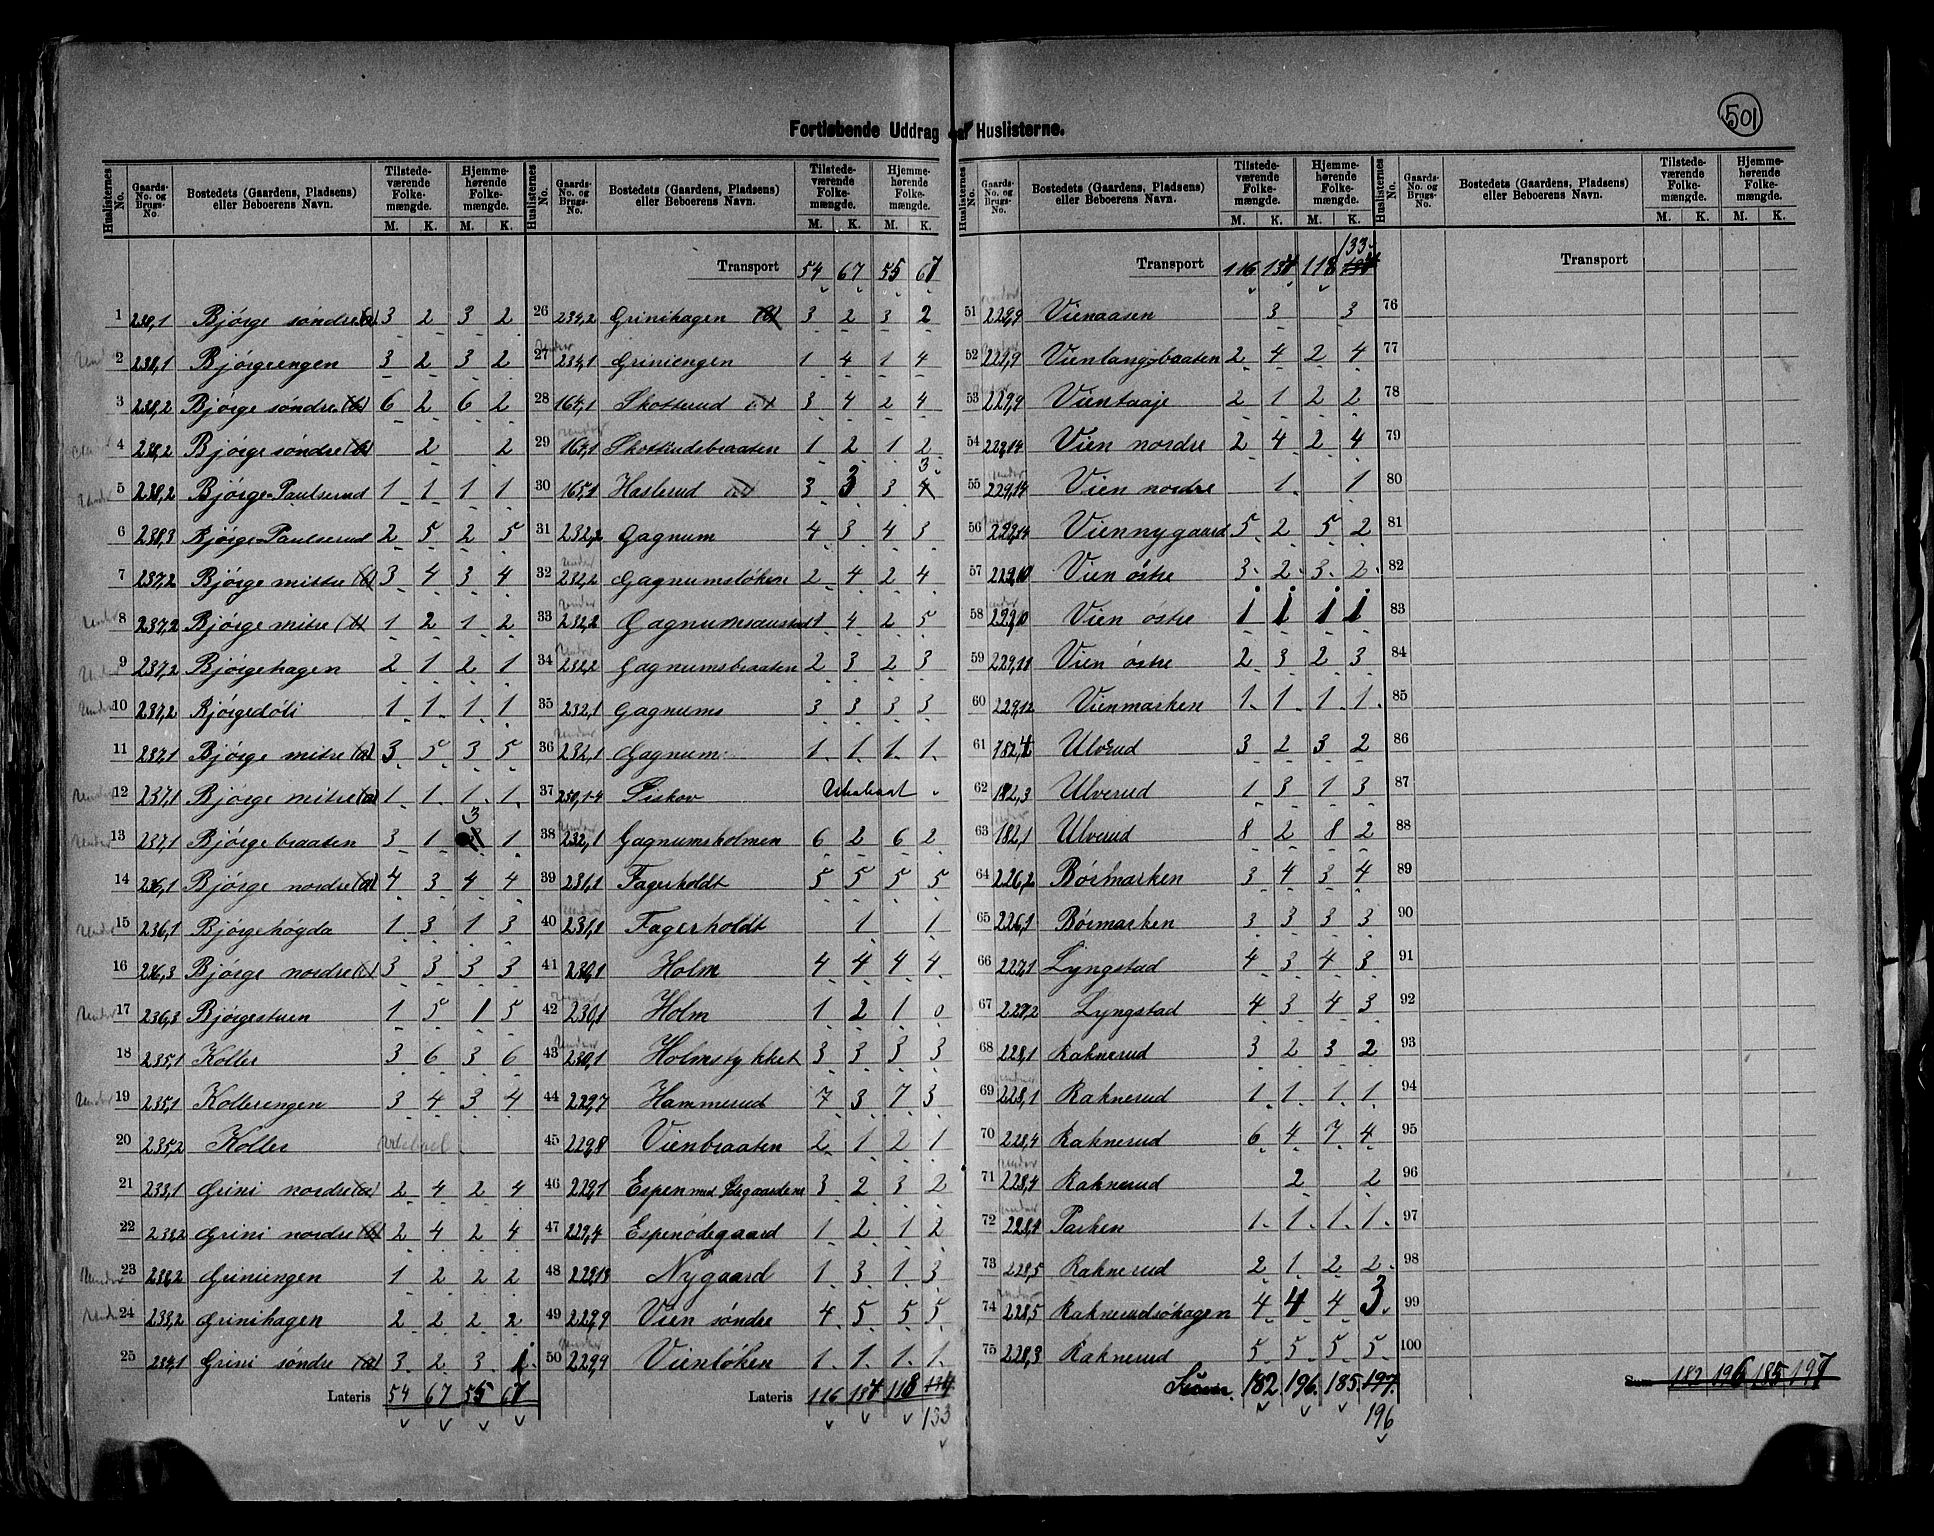 501
Fortløbende Uddrag af Huslisterne.
Huslisternes No. | Gaards-No. og Brugs-No. | Bostedets (Gaardens, Pladsens) eller Beboerens Navn. | Tilstedeværende Folkemængde. M. K. | Hjemmehørende Folkemængde. M. K.
1 238,1 Bjørge søndre (a) 3 2 3 2
2 238,1 Bjørgeengen 3 2 3 2
3 238,2 Bjørge søndre (b) 6 2 6 2
4 238,2 Bjørge søndre (b) 2 2
5 238,2 Bjørge Paulserud 1 1 1 1
6 238,3 Bjørge Paulserud 2 5 2 5
7 237,2 Bjørge mittre (b) 3 4 3 4
8 237,2 Bjørge mitre (b) 1 2 1 2
9 237,2 Bjørgehagen 2 1 2 1
10 237,2 Bjørgedöli 1 1 1 1
11 237,1 Bjørge mitre (a) 3 5 3 5
12 237,1 Bjørge mitre (a) 1 1 1 1
13 237,1 Bjørgebraaten 3 1 3 1
14 236,1 Bjørge nordre (a) 4 3 4 4
15 236,1 Bjørgehögda 1 3 1 3
16 236,3 Bjørge nordre 3 3 3 3
17 236,3 Bjørgestuen 1 5 1 5
18 235,1 Koller 3 6 3 6
19 235,1 Kollerengen 3 4 3 4
20 235,2 Koller
21 233,1 Grini nordre (a) 2 4 2 4
22 233,2 Grini nordre (b) 2 4 2 4
23 233,2 Griniengen 1 2 2 2
24 233,2 Grinihagen 2 2 2 2
25 234,1 Grini søndre (a) 3 2 3 1
Lateris 54 67 55 67
Transport 54 67 55 67
26 234,2 Grinihagen (b) 3 2 3 2
27 234,1 Griniengen 1 4 1 4
28 164,1 Skotterud 3 4 2 4
29 164,1 Skotterudsbraaten 1 2 1 2
30 165,1 Haslerud 3 3 3 4 3
31 232,2 Gagnum 4 3 4 3
32 232,2 Gagnumsløken 2 4 2 4
33 232,2 1 4 2 5
34 232,2 Gagnumsbraaten 2 3 2 3
35 232,1 Gagnums 3 3 3 3
36 232,1 Gagnum 1 1 1 1
37 250,1-4 Siskov Ubeboet
38 232,1 Gagnumsholmen 6 2 6 2
39 231,1 Fagerholdt 5 5 5 5
40 231,1 Fagerholdt 1 1
41 230,1 Holm 4 4 4 4
42 230,1 Holm 1 2 1 0
43 230,1 Holmstykket 3 3 3 3
44 229,7 Hammerud 7 3 7 3
45 229,8 Vienbraaten 2 1 2 1
46 229,1 Espen med Ødegaardene 3 2 3 2
47 229,4 Espenödegaard 1 2 1 2
48 229,13 Nygaard 1 3 1 3
49 229,9 Vien søndre 4 5 5 5
50 229,9 Vienløken 1 1 1 1
Lateris 116 134 118 134 133
Transport 116 134 118 134 133
51 229,9 Vienaasen 3 3
52 229,9 Vienlangsbraaten 2 4 2 4
53 229,9 Vientaaje 2 1 2 2
54 229,14 Vien nordre 2 4 2 4
55 229,14 Vien nordre 1 1
56 229,14 Viennygaard 5 2 5 2
57 229,10 Vien östre 3 2 3 2
58 229,10 Vien östre 1 1 1 1
59 229,11 Vien östre 2 3 2 3
60 229,12 Vienmarken 1 1 1 1
61 Ulverud 3 2 3 2
62 182,3 Ulverud 1 3 1 3
63 182,1 Ulverud 8 2 8 2
64 226,2 Börmarken 3 4 3 4
65 226,1 Börmarken 3 3 3 3
66 227,1 Lyngstad 4 3 4 3
67 227,2 Lyngstad 4 3 4 3
68 228,1 Raknerud 3 2 3 2
69 228,1 Raknerud 1 1 1 1
70 228,4 Raknerud 6 4 7 4
71 228,4 Raknerud 2 2
72 228,4 Parken 1 1 1 1
73 228,5 Raknerud 2 1 2 2
74 228,5 Raknerudsöhagen 4 4 4 3
75 228,3 Raknerud 5 5 5 5
Summa 182 196 185 197 196
Transport
76
77
78
79
80
81
82
83
84
85
86
87
88
89
90
91
92
93
94
95
96
97
98
99
100
Sum 182 196 185 197